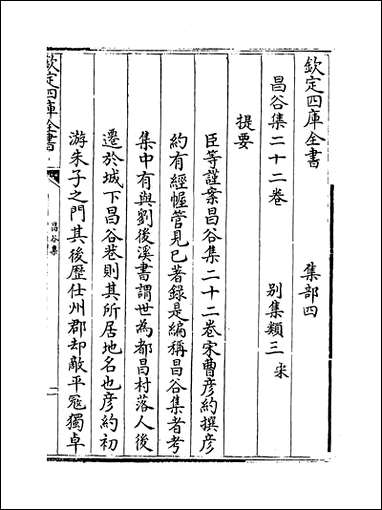 欽定四庫全書　集部四
昌谷集二十二卷　別集類三宋
提要
臣等謹案昌谷集二十二卷宋曹彦約撰彦
約有經幄管見已著錄是編稱昌谷集者考
集中有與劉後溪書謂世為都昌村落人後
遷於城下昌谷巷則其所居地名也彦約初
游朱子之門其後歴仕州郡却敵平冦獨卓
欽定四庫全書
昌谷集